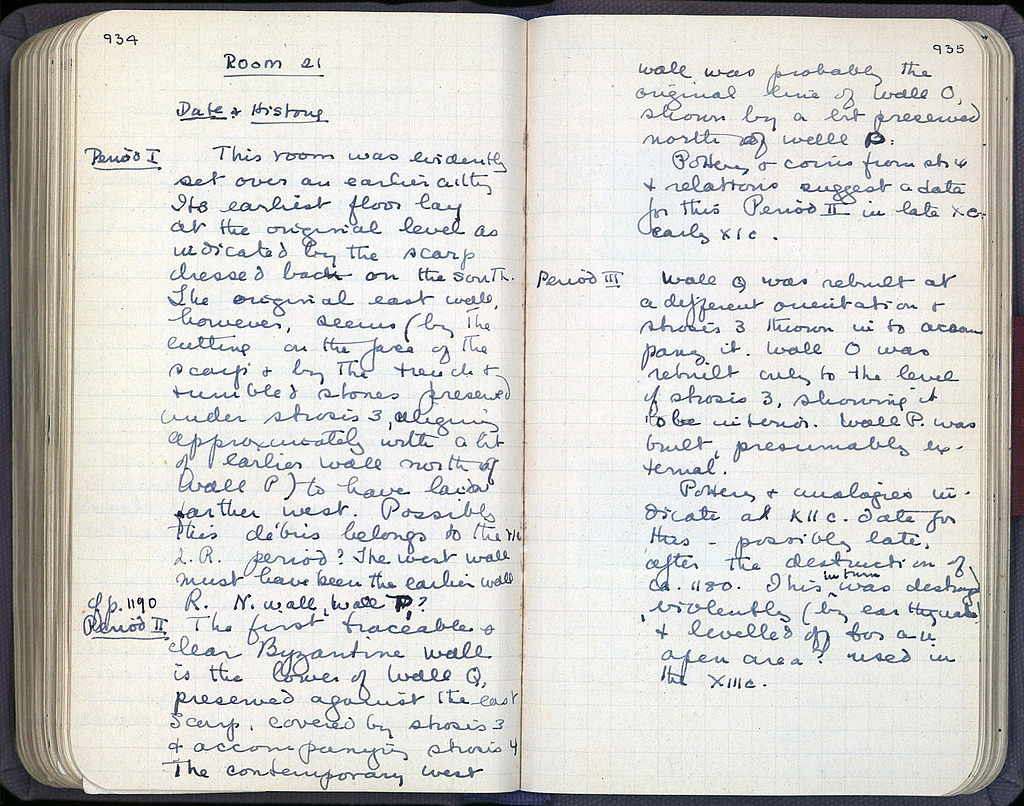 934
Room 21
Date & History
Period I
This room was evidently
set over an earlier
Its earliest floor lay
at the original level as
indicated by the scarp
dressed back on the south.
The original east wall,
however, seems (by the
cutting on the face of the
scarp & by the trench &
tumbled stones preserved
under strosis 3, aligning
approximately with a bit
of earlier wall north of
wall P) to have lain
farther west. Possibly
this débris belongs to the
L.R. period? The west wall
must have been the earlier wall
cf p. 1190
R. N. wall, wall P?
Period II
The first traceable &
clear Byzantine wall
is the lower of wall Q,
preserved against the east
scarp, covered by strosis 3
& accompanying strosis 4
The contemporary west
935
wall was probably the
original line of wall O,
shown by a bit preserved
north of wall P.
Pottery & coins from str 4
& relations suggest a date
for this Period II in late X c.
early XI c.
Period III
Wall Q was rebuilt at
a different orientation &
strosis 3 thrown in to accom
pany it. Wall O was
rebuilt only to the level
of strosis 3, showing it
to be interior. Wall P. was
built, presumably ex-
ternal.
Pottery & analogies in-
dicate at XII c. date for
this - possibly late,
after the destruction of
ca. 1180. This in turn was destroyed
violently (by earthquake)
& levelled off for an
open area? used in
the XIII c.